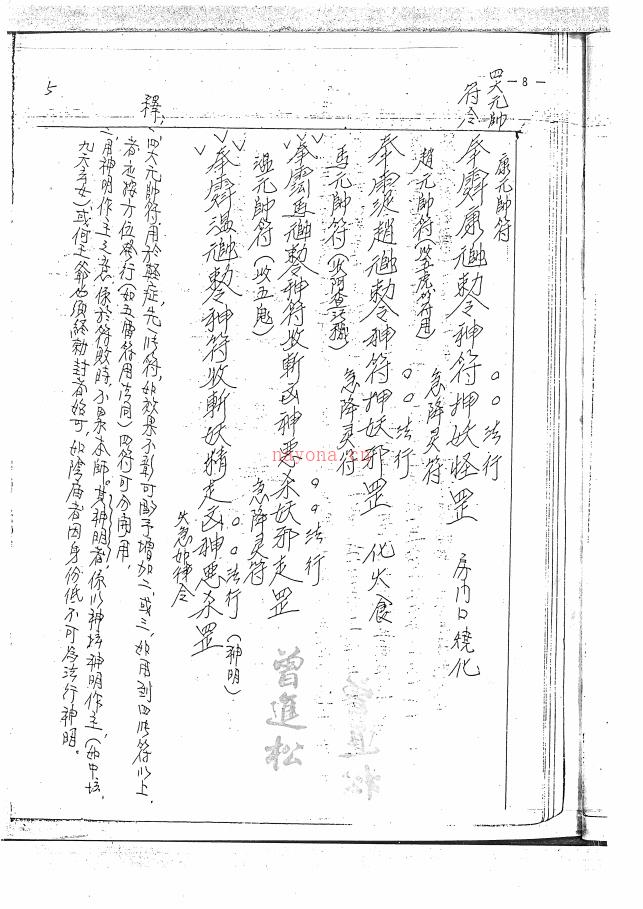 -8-
四大元帥
符令
康元帥符
奉 康元帥勅令神符押妖怪罡
○○法行
急降灵符
房内口燒化
趙元帥符(收五虎的符用)
奉 趙元帥勅令神符押妖邪罡
○○法行
急降灵符
化火食
馬元帥符
奉 馬元帥勅令神符收斬凶神惡杀妖邪走罡
○○法行
急降灵符
溫元帥符(收五鬼)
奉 溫元帥勅令神符收斬妖精走凶神惡杀罡
○○法行(神明)
火急如律令
曾進松
釋、四大元帥符用於 症先 符,如效果不彰可酌予增加二、或三,如用到四 符以上
者 按方位 行(如五 符用法同)四符可分開用,
二用神明作主之意係於符敗時,不累本師。其神明者係以神壇神明作主,(如中壇、
九天玄女)或何王爺也須經勅封者始可,如陰廟者因身份低不可為法行神明。
5
nayona.cn